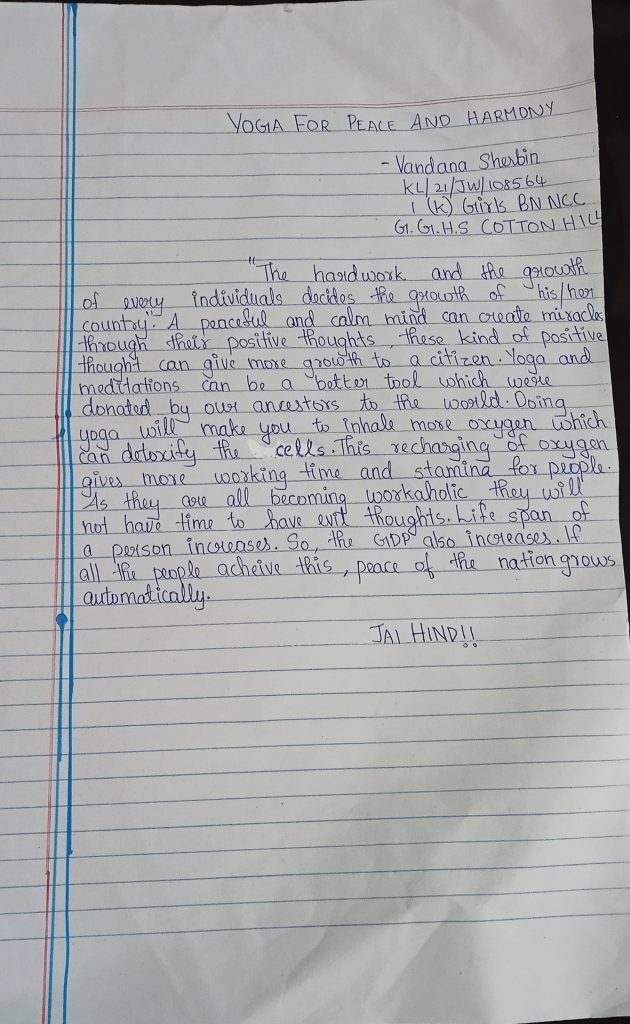 YOGA FOR PEACE AND HARMONY
- Vandana Sherbin
KL/21/JW/108564
1 (K) Girls BN NCC
G.G.H.S COTTON HILL
"The hardwork and the growth
of every individuals decides the growth of his/her
country". A peaceful and calm mind can create miracles
through their positive thoughts, these kind of positive
thought can give more growth to a citizen. Yoga and
meditations can be a better tool which were
donated by our ancestors to the world. Doing
yoga will make you to inhale more oxygen which
can detoxify the cells. This recharging of oxygen
gives more working time and stamina for people.
As they are all becoming workaholic, they will
not have time to have evil thoughts. Life span of
a person increases. So, the GDP also increases. If
all the people acheive this, peace of the nation grows
automatically.
JAI HIND!!